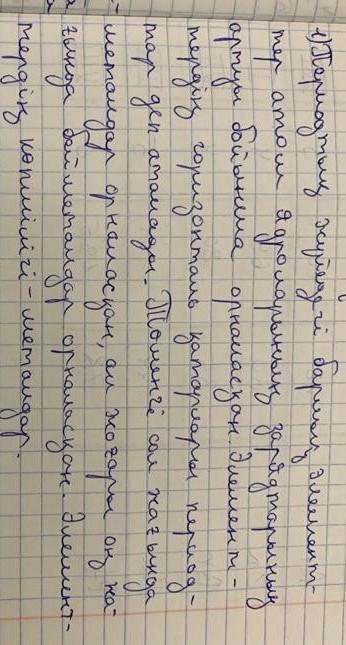 1) Периодтық жүйедегі барлық элемент-
тер атом ядроларының зарядтарының
артуы бойынша орналасқан. Элемент-
тердің горизонталь қатарлары период-
тар деп аталады. Төменгі сол жағында
металдар орналасқан, ал жоғары оң жа-
ғында бейметалдар орналасқан. Элемент-
тердің көпшілігі - металдар.